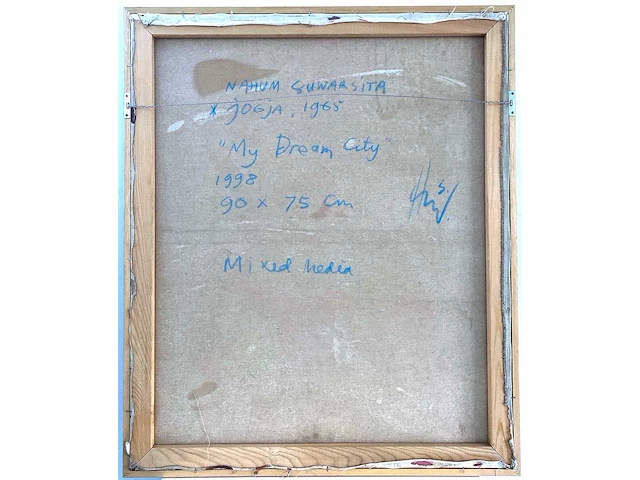 NAHUM SUWARSITA
* JOGJA, 1965
"My Dream City"
1998
90 x 75 Cm
Mixed Media